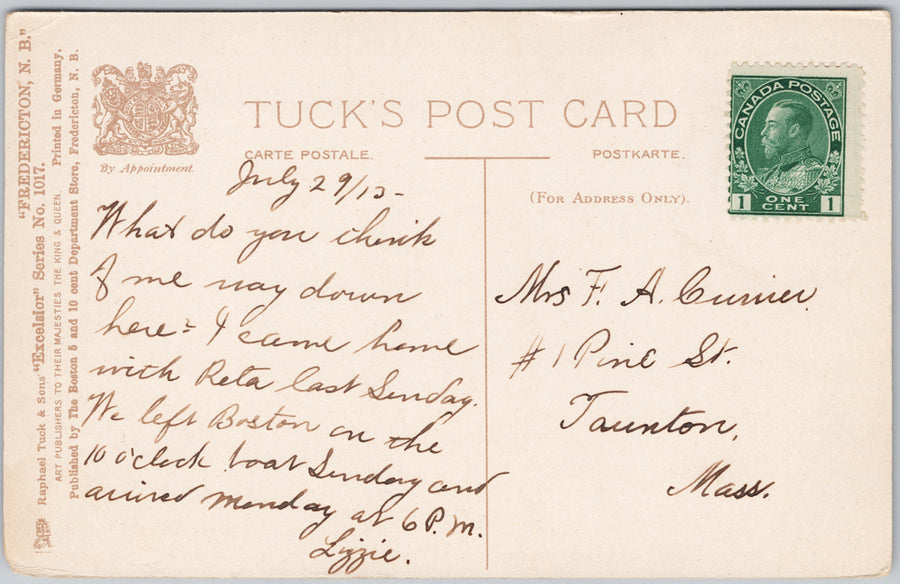 "FREDERICTON, N. B."
Raphael Tuck & Sons' "Excelsior" Series No. 1017.
ART PUBLISHERS TO THEIR MAJESTIES THE KING & QUEEN. Printed in Germany.
Published by The Boston 5 and 10 cent Department Store, Fredericton, N. B.
By Appointment.
TUCK'S POST CARD
CARTE POSTALE.
POSTKARTE.
(FOR ADDRESS ONLY).
CANADA POSTAGE
1 ONE CENT 1
July 29/13-
What do you think
of me way down
here - I came home
with Reta last Sunday.
We left Boston on the
10 o'clock boat Sunday and
arrived Monday at 6 P.M.
Lizzie.
Mrs F. A. Currier
# 1 Pine St.
Taunton,
Mass.